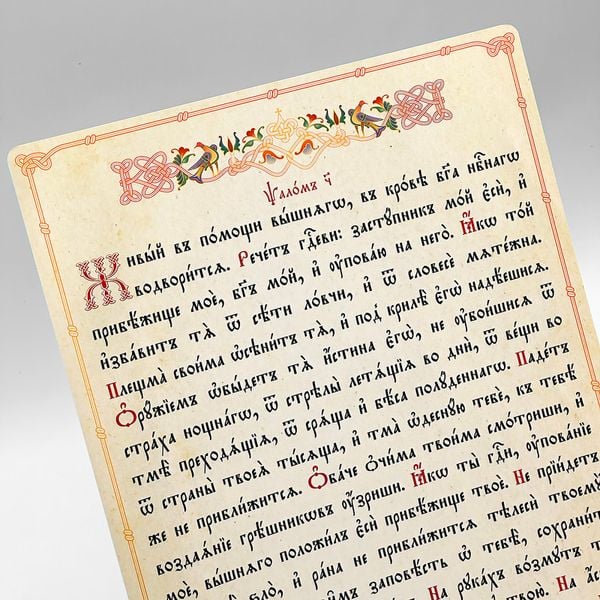 Ѱало́мъ ч҃
Живы́й въ по́мощи вы́шнѧгѡ, въ кро́вѣ бг҃а нбⷭ҇нагѡ
водвори́тсѧ. Рече́тъ гдⷭ҇еви: застꙋ́пникъ мо́й є҆сѝ, и҆
прибѣ́жище моѐ, бг҃ъ мо́й, и҆ ᲂу҆пова́ю на него̀. Ꙗ҆́кѡ то́й
и҆зба́витъ тѧ̀ ѿ сѣ́ти ло́вчи, и҆ ѿ словесѐ мѧте́жна.
Плещма̀ свои́ма ѡ҆сѣни́тъ тѧ̀, и҆ под̾ крилѣ̑ є҆гѡ̀ надѣ́ешисѧ.
Ѻ҆рꙋ́жїемъ ѡ҆бы́детъ тѧ̀ и҆́стина є҆гѡ̀, не ᲂу҆бои́шисѧ ѿ
стра́ха нощна́гѡ, ѿ стрѣлы̀ летѧ́щїѧ во днѝ, ѿ ве́щи во
тмѣ̀ преходѧ́щїѧ, ѿ срѧ́ща и҆ бѣ́са полꙋ́деннагѡ. Паде́тъ
ѿ страны̀ твоеѧ̀ ты́сѧща, и҆ тма̀ ѡ҆деснꙋ́ю тебѐ, къ тебѣ́
же не прибли́житсѧ. Ѻ҆ба́че ѻ҆чи́ма твои́ма смо́триши, и҆
воздаѧ́нїе грѣ́шникѡвъ ᲂу҆́зриши. Ꙗ҆́кѡ ты̀ гдⷭ҇и, ᲂу҆пова́нїе
моѐ, вы́шнѧго положи́лъ є҆сѝ прибѣ́жище твоѐ. Не прїи́детъ
ѕло̀, и҆ ра́на не прибли́житсѧ тѣлесѝ твоемꙋ̀
заповѣ́сть ѡ҆ тебѣ̀, сохрани́т
На рꙋка́хъ во́змꙋтъ т
твою̀. На а҆́с